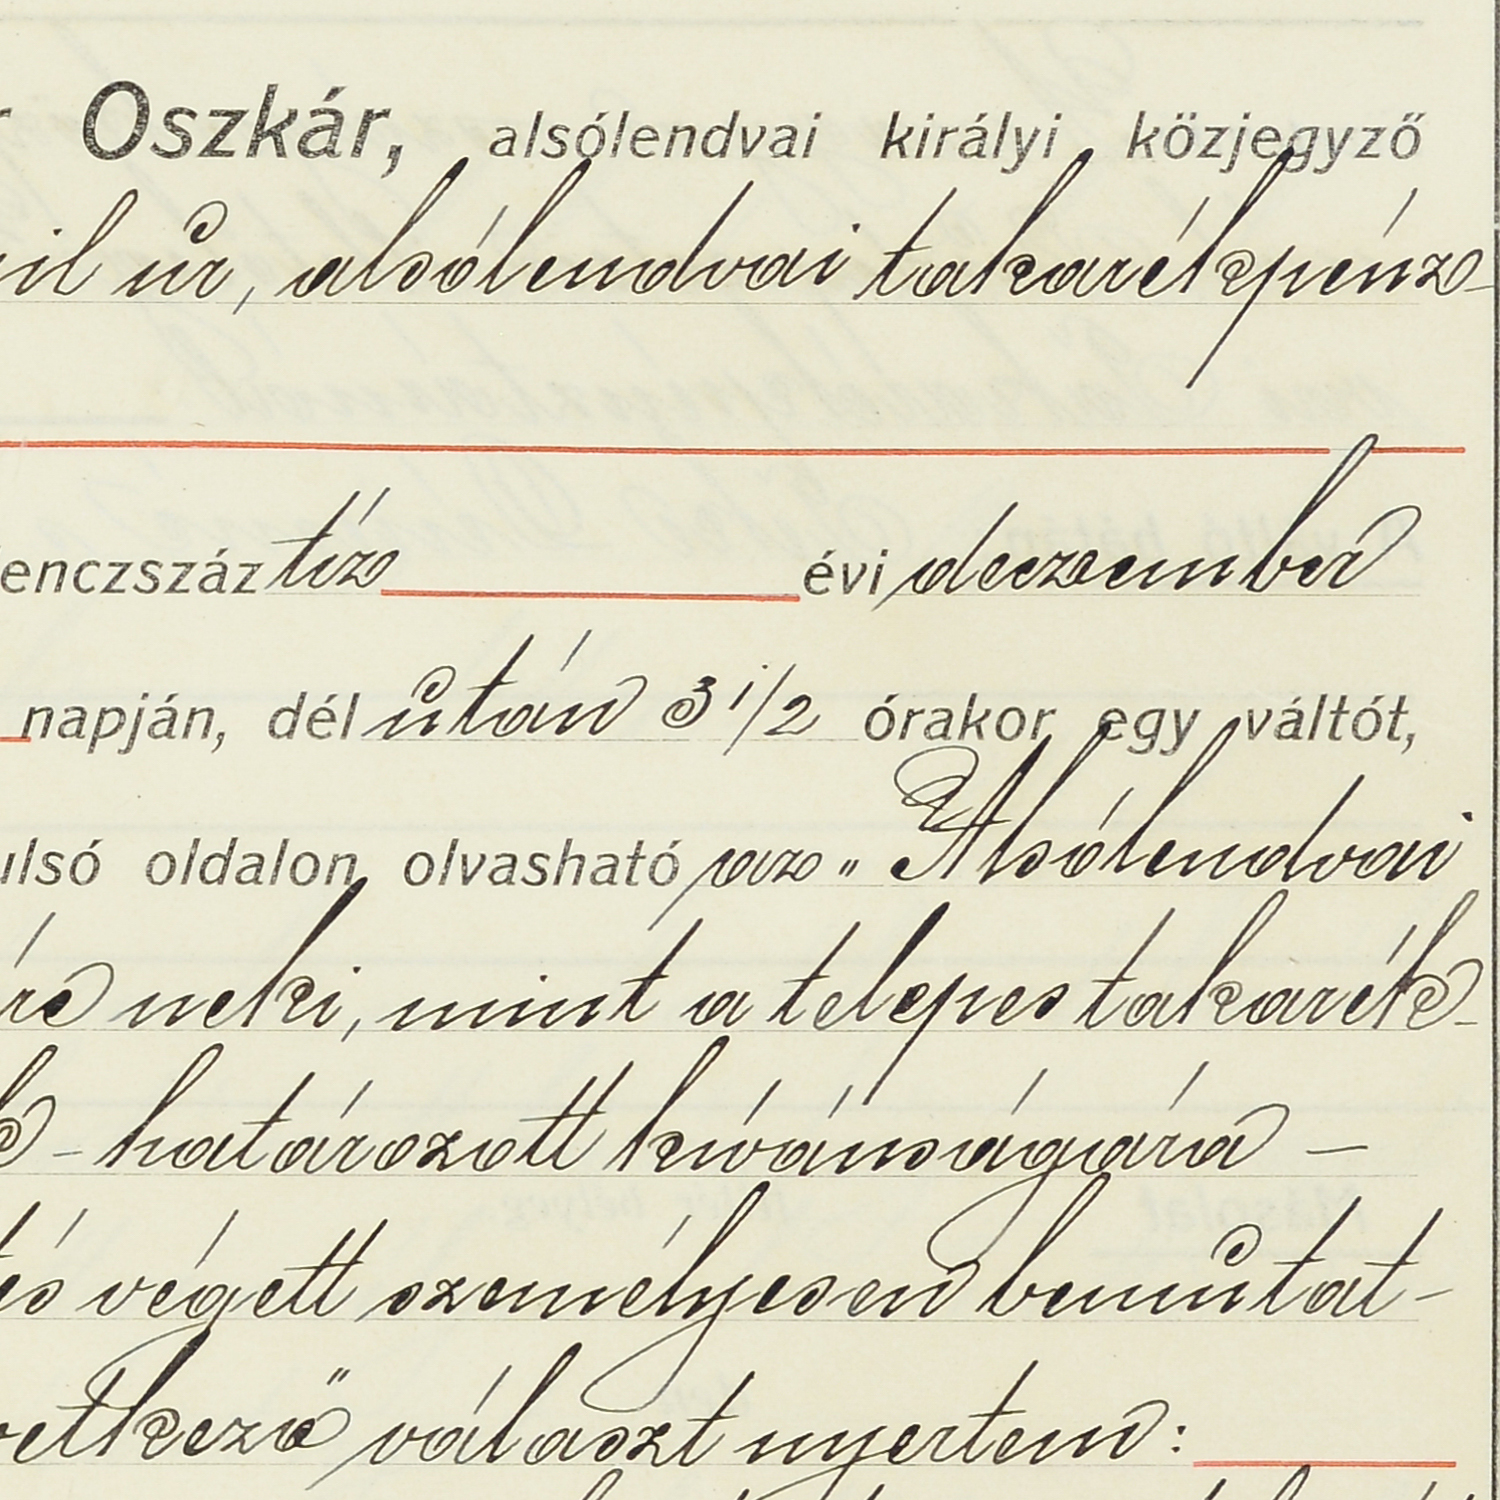 r Oszkár, alsólendvai királyi közjegyző
il úr, alsólendvai takarékpénz-
enczszáz tíz évi deczember
napján, dél után 3 1/2 órakor egy váltót,
ulsó oldalon olvasható az „Alsólendvai
re neki, mint a telepes takarék-
k - határozott kívánságára -
és végett személyesen bemutat-
vetkező választ nyertem: